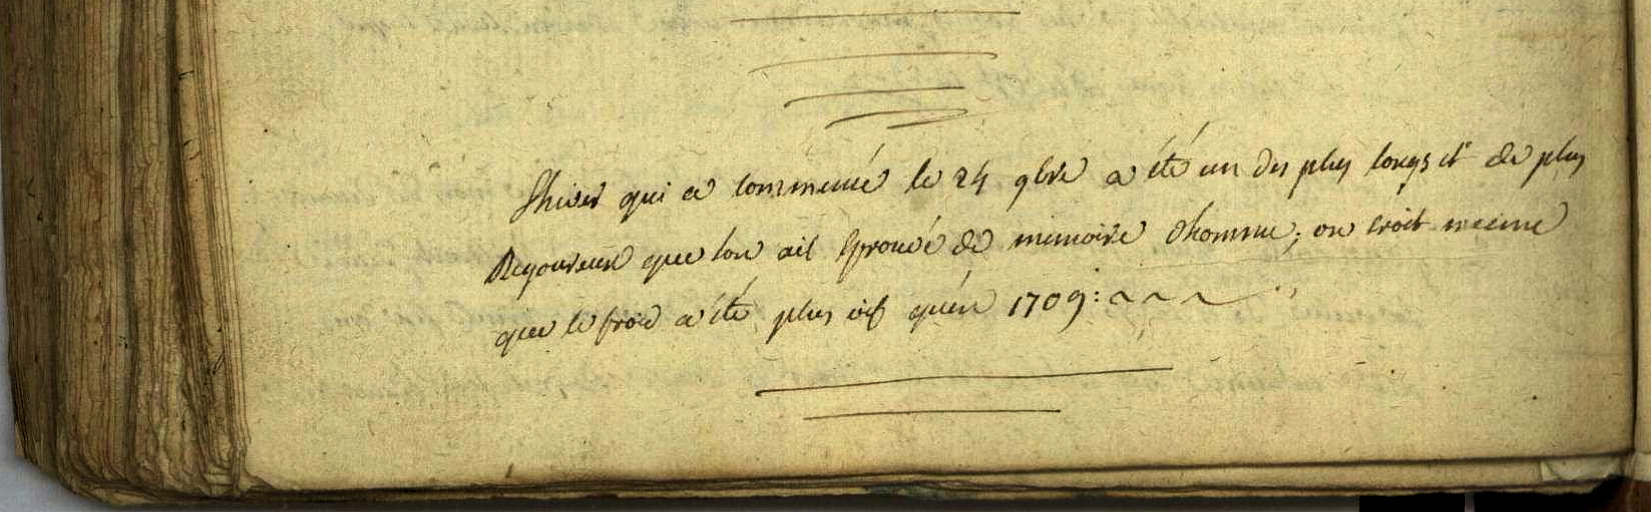 Lhiver qui a commencé le 24 9bre a été un des plus longs et de plus
Rigoureux que lon ait Eprouvé de memoire dhomme; on croit meme
que le froid a été plus vif qu'en 1709: